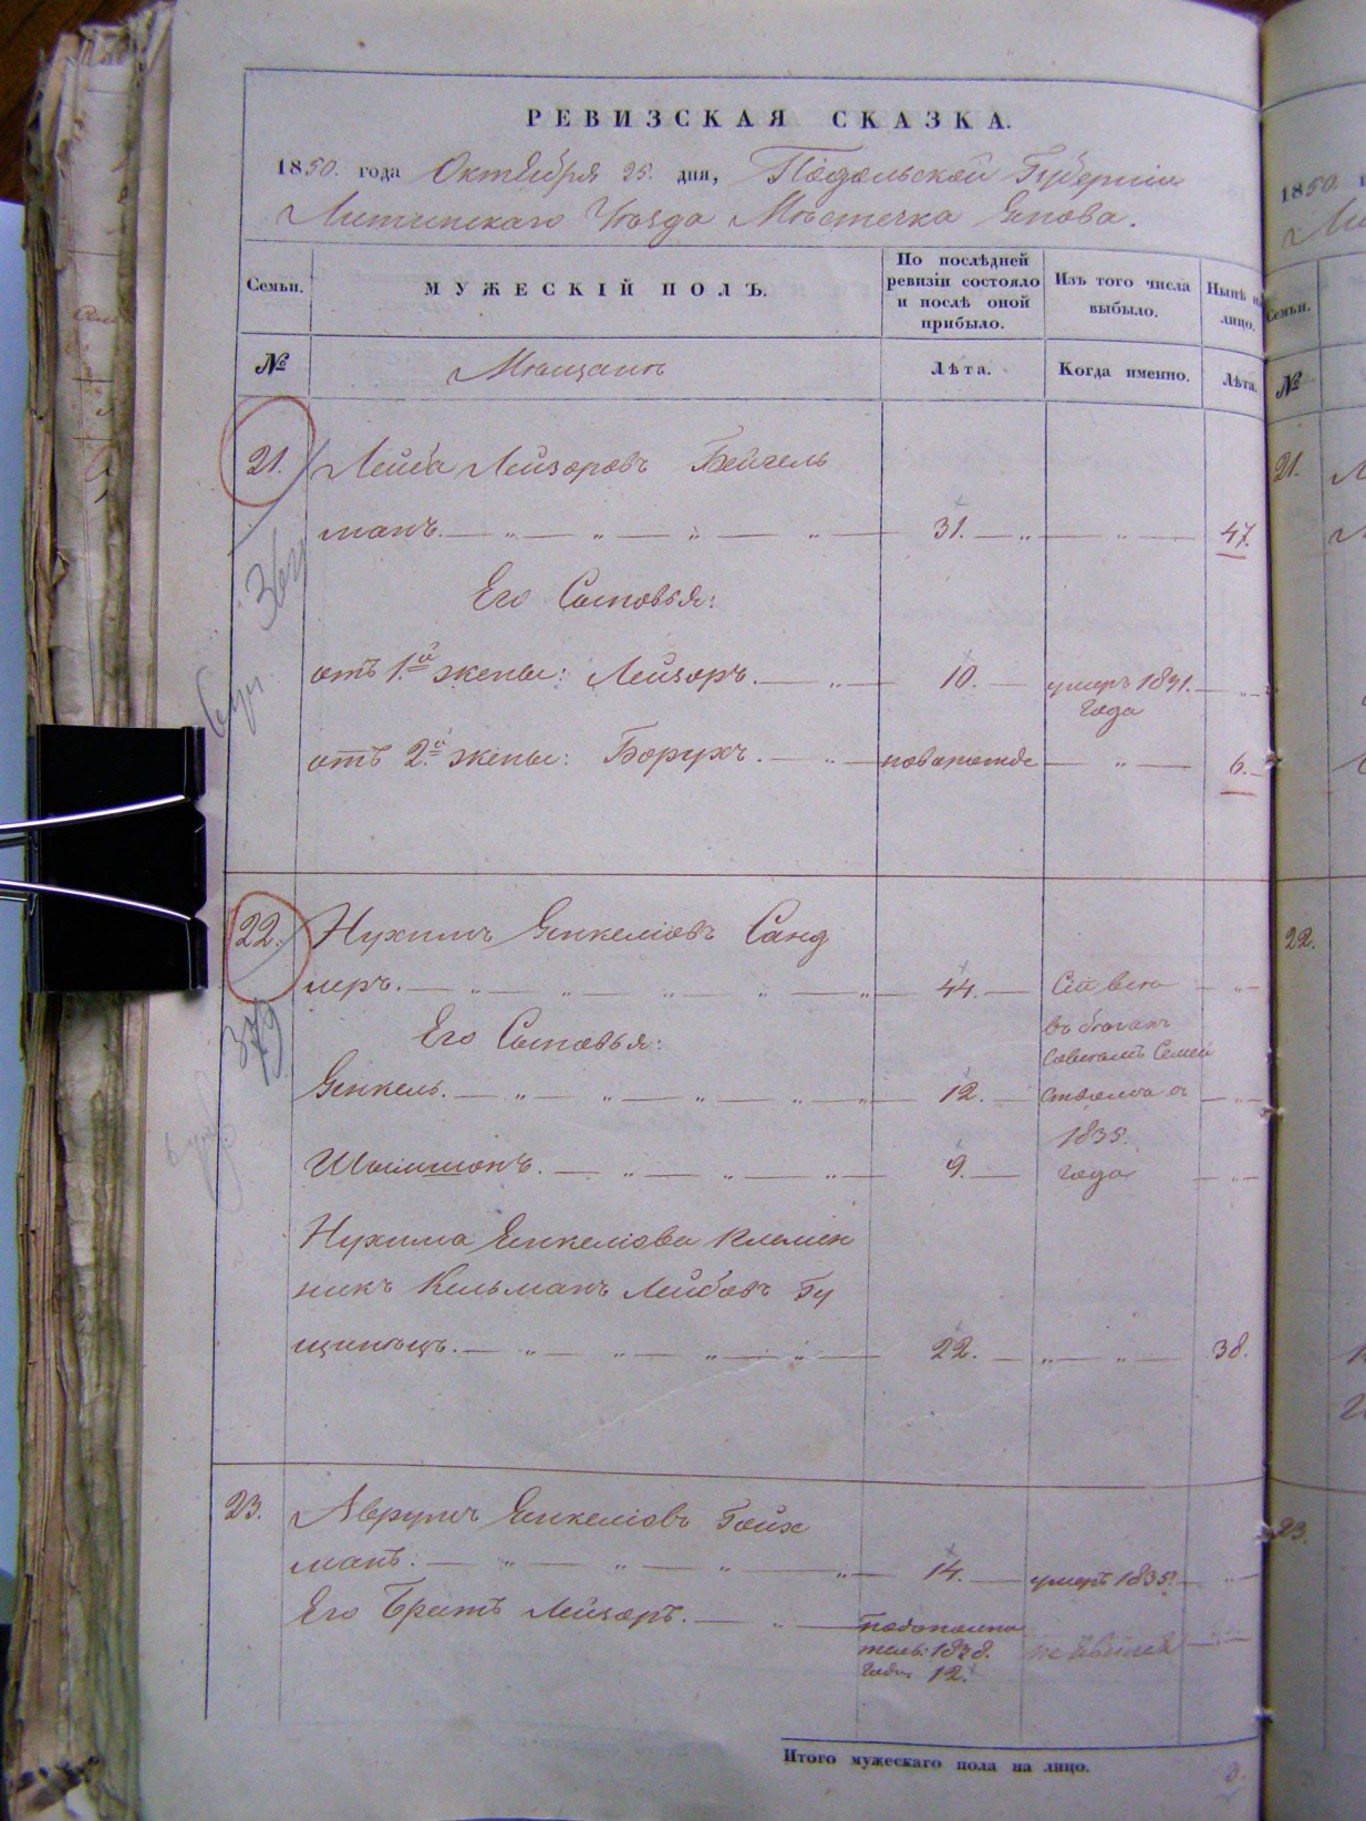 РЕВИЗСКАЯ СКАЗКА.
1850. года Октября 25. дня, Подольской Губернии
Литинскаго Уѣзда Мѣстечка Янова.
Семьи.
МУЖЕСКІЙ ПОЛЪ.
По послѣдней ревизіи состояло и послѣ оной прибыло.
Изъ того числа выбыло.
Нынѣ на лицо.
№
Мѣщанъ
Лѣта.
Когда именно.
Лѣта.
21. Лейба Лейзоровъ Бейчель
манъ. 31. 47.
Его Сыновья:
отъ 1.й жены: Лейзоръ. 10. умеръ 1841.
года
отъ 2.й жены: Борухъ. новорожде 6.
22. Нухимъ Янкеліовъ Санд
леръ. 44. Сіи всѣ
Его Сыновья: въ бѣгахъ
совсѣмъ Семей
Янкель. 12. ствомъ съ
1835.
Шлиомонъ. 9. года
Нухима Янкеліова племен
никъ Кельманъ Лейбовъ Гу
щинецъ. 22. 38.
23. Аврумъ Янкеліовъ Гойх
манъ. 14. умеръ 1835.
Его Братъ Лейзоръ. по дополни
тель: 1838.
года 12.
Итого мужескаго пола на лицо. 3.
1850.
Семьи.
№
21.
22.
23.